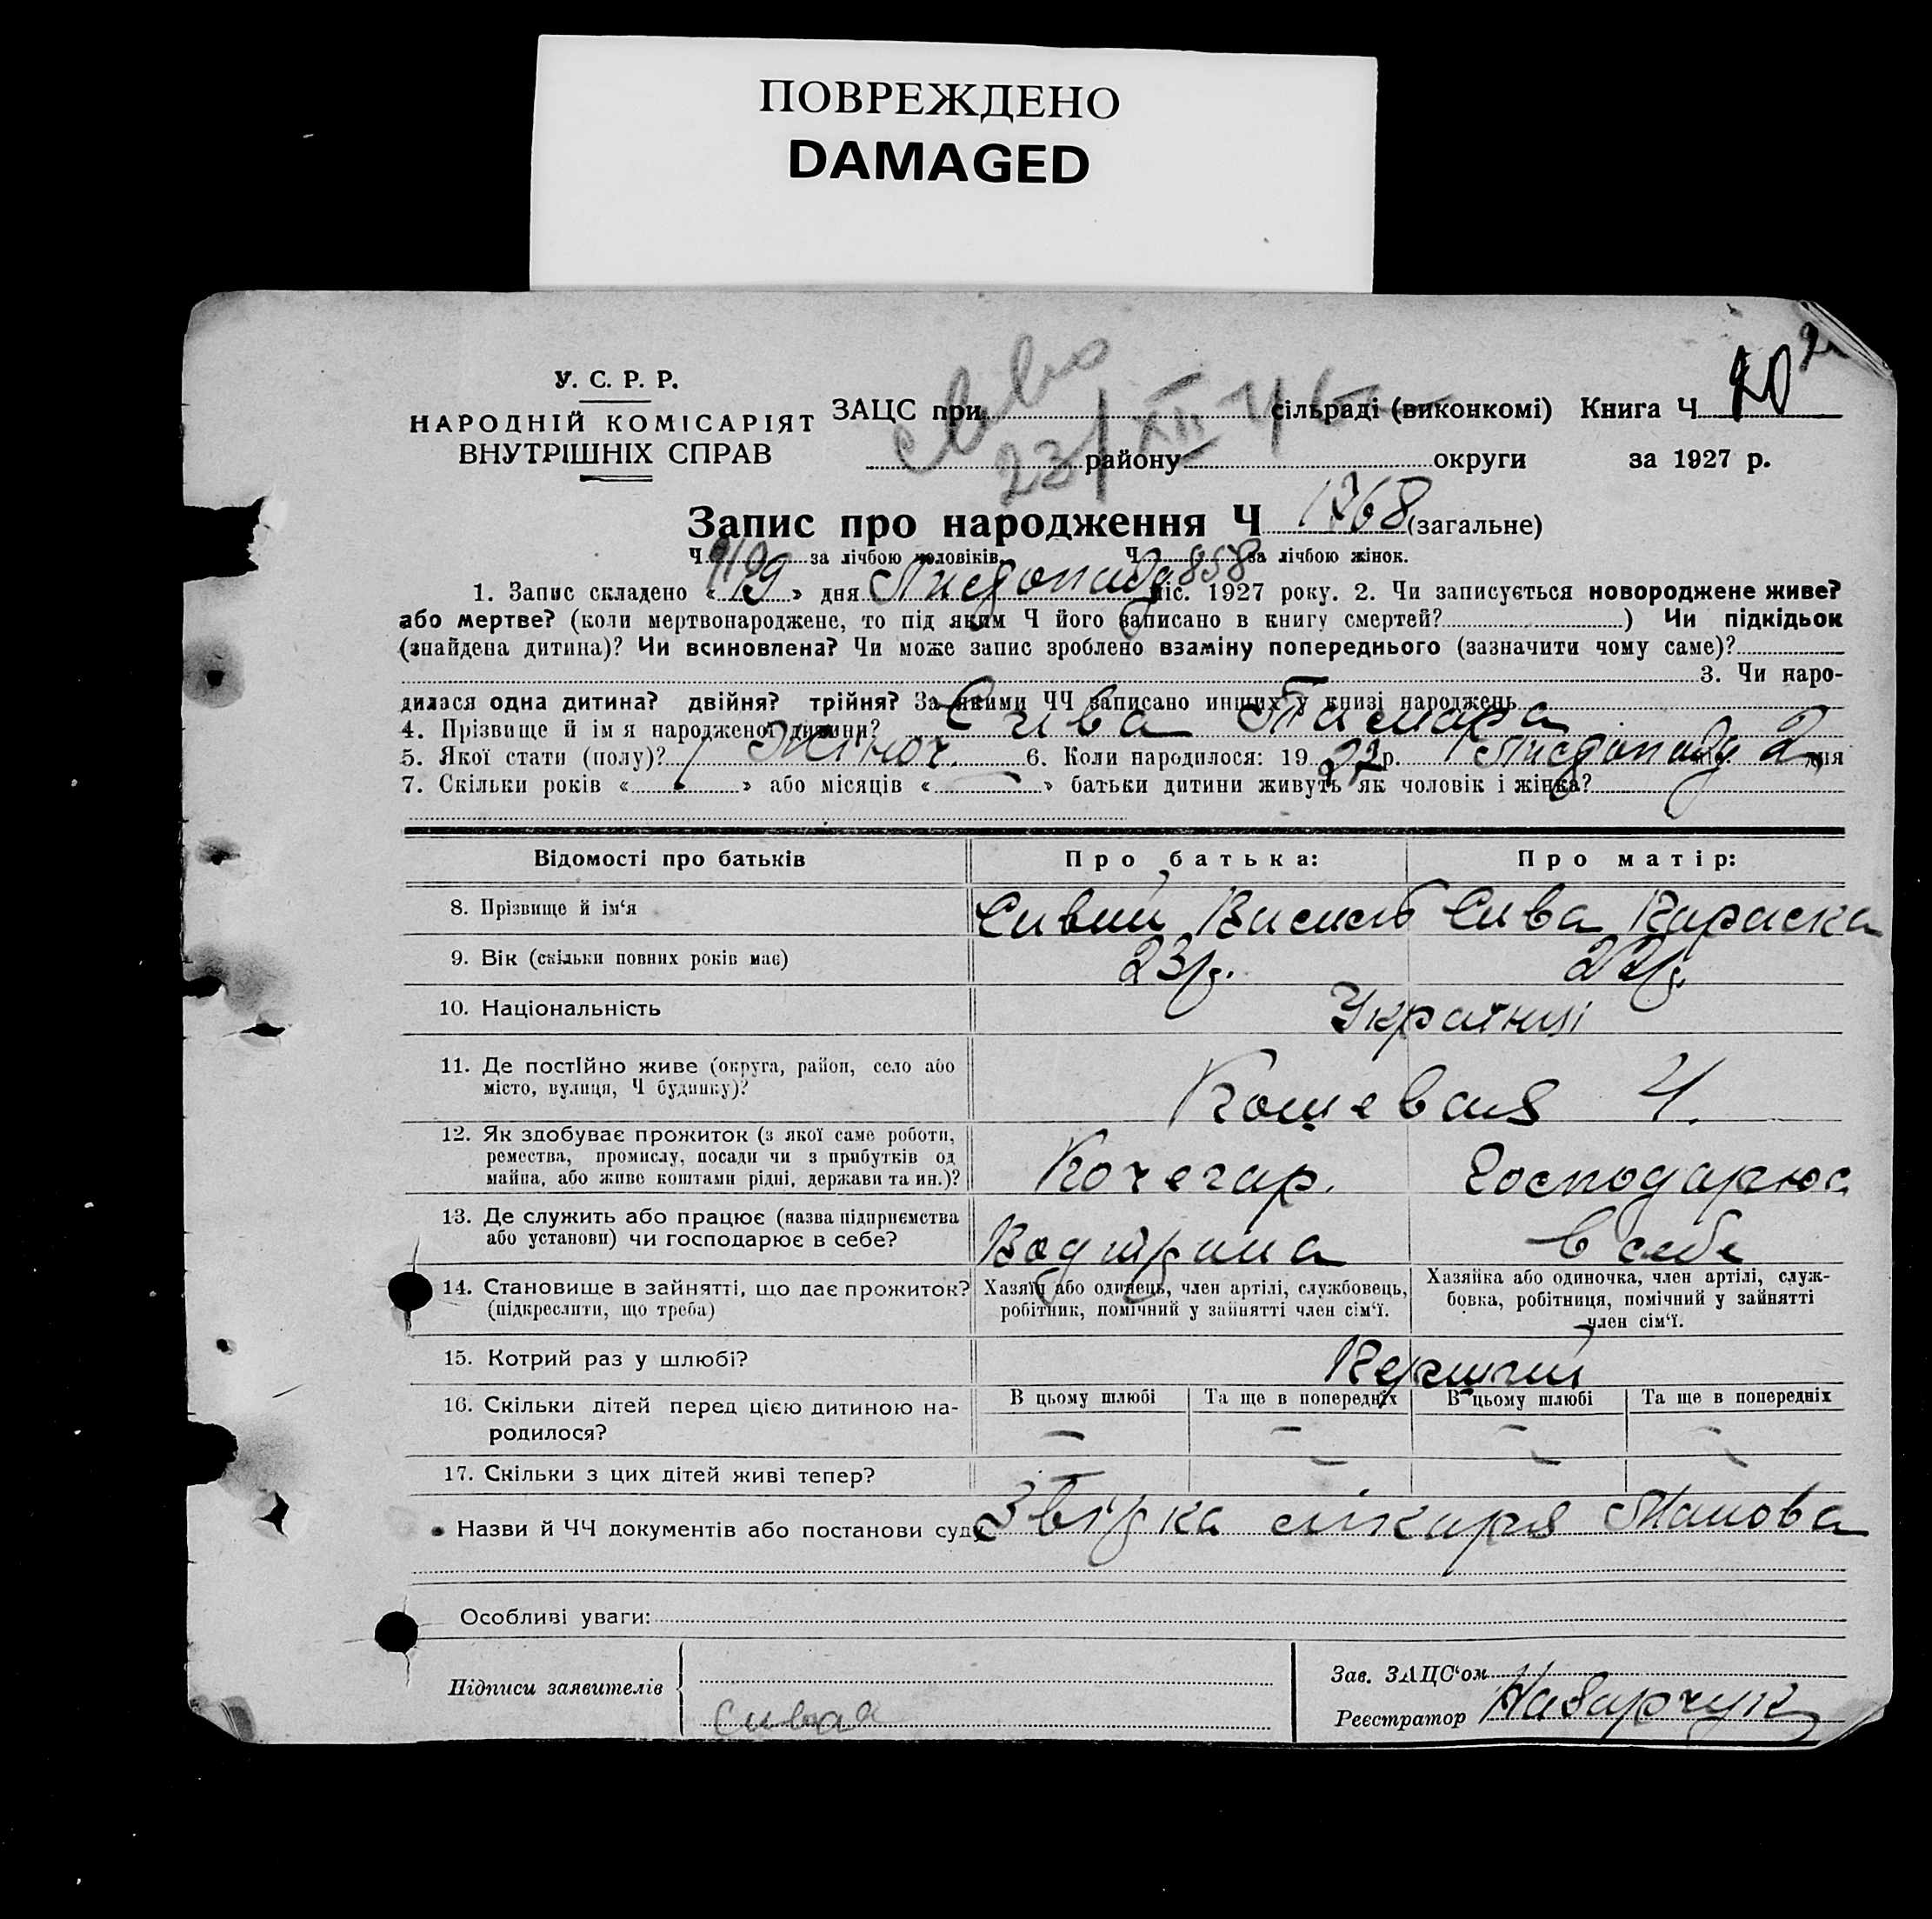 ПОВРЕЖДЕНО
DAMAGED
У. С. Р. Р.
НАРОДНІЙ КОМІСАРІЯТ
ВНУТРІШНІХ СПРАВ
ЗАЦС при сільраді (виконкомі) Книга Ч
23/XII 46
району округи за 1927 р.
Запис про народження Ч 1768 (загальне)
Ч за лічбою чоловіків. Ч 858 за лічбою жінок.
1. Запис складено « 19 » дня Листопада міс. 1927 року. 2. Чи записується новороджене живе?
або мертве? (коли мертвонароджене, то під яким Ч його записано в книгу смертей? ) Чи підкідьок
(знайдена дитина)? Чи всиновлена? Чи може запис зроблено взаміну попереднього (зазначити чому саме)?
3. Чи наро-
дилася одна дитина? двійня? трійня? За якими ЧЧ записано инших у книзі народжень
4. Прізвище й ім я народженої дитини? Сива Тамара
5. Якої стати (полу)? Жіноч. 6. Коли народилося: 19 27 р. Листопаду міс. 2 дня
7. Скільки років « » або місяців « » батьки дитини живуть як чоловік і жінка?
Відомості про батьків Про батька: Про матір:
8. Прізвище й ім‘я Сивий Василь Сива Параска
9. Вік (скільки повних років має) 23 р. 22 р.
10. Національність Українці
11. Де постійно живе (округа, район, село або
місто, вулиця, Ч будинку)? Кошевая 4.
12. Як здобуває прожиток (з якої саме роботи,
ремества, промислу, посади чи з прибутків од
майна, або живе коштами рідні, держави та ин.)? Кочегар. Господарює
13. Де служить або працює (назва підприємства
або установи) чи господарює в себе? в себе
14. Становище в зайнятті, що дає прожиток?
(підкреслити, що треба)
Хазяїн або одинець, член артілі, службовець,
робітник, помічний у зайнятті член сім‘ї.
Хазяйка або одиночка, член артілі, служ-
бовка, робітниця, помічний у зайнятті
член сім‘ї.
15. Котрий раз у шлюбі? Перший
16. Скільки дітей перед цією дитиною на-
родилося?
В цьому шлюбі Та ще в попередніх В цьому шлюбі Та ще в попередніх
– – – –
17. Скільки з цих дітей живі тепер? – – – –
Назви й ЧЧ документів або постанови суду Звірка лікаря
Особливі уваги:
Підписи заявителів
Сивая
Зав. ЗАЦС‘ом
Реєстратор